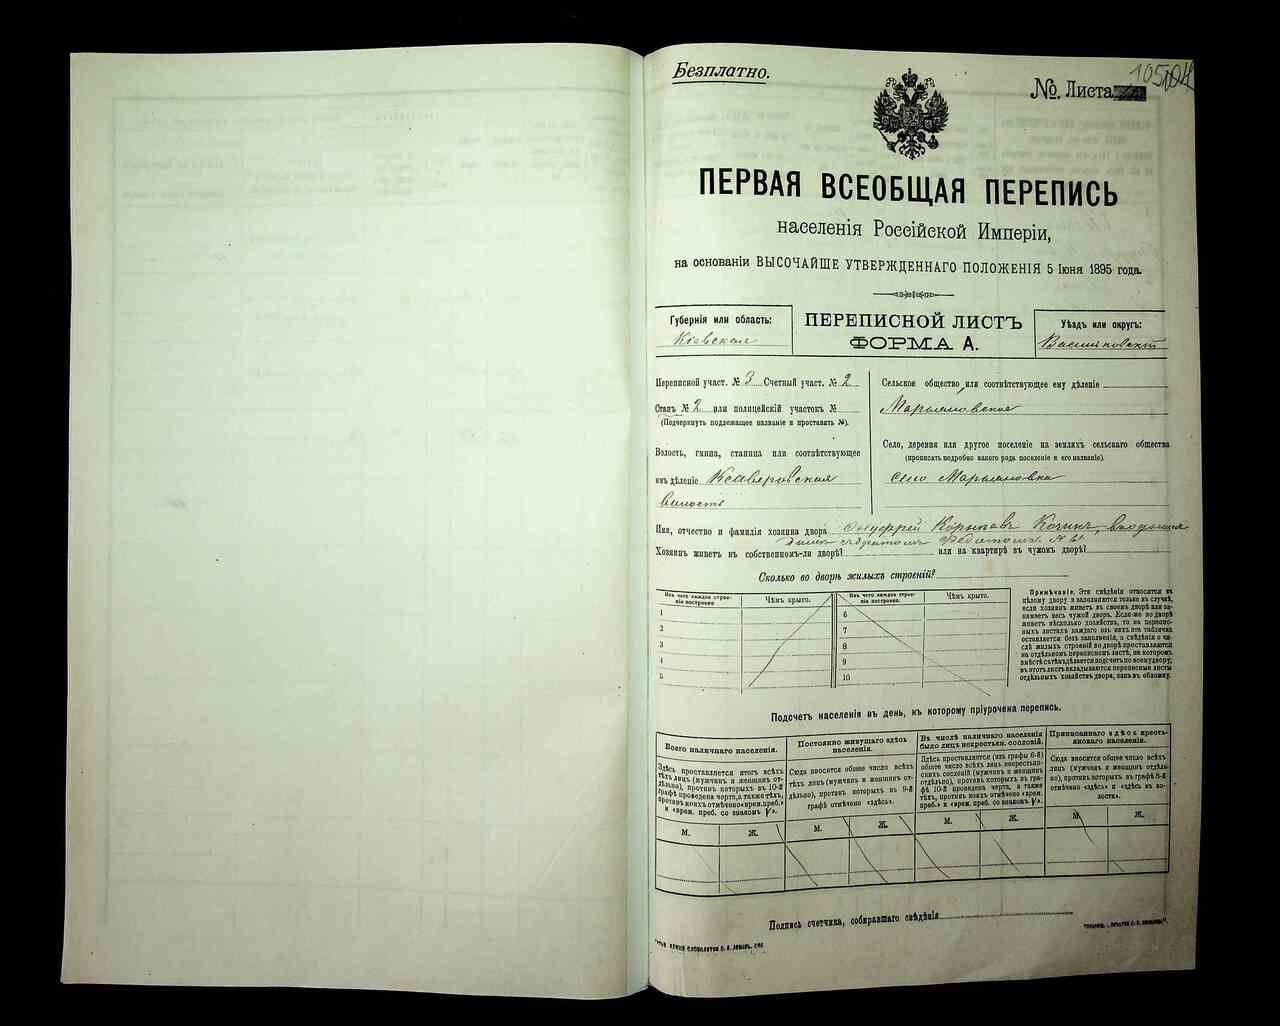 Безплатно.
№ Листа
105
ПЕРВАЯ ВСЕОБЩАЯ ПЕРЕПИСЬ
населенія Россійской Имперіи,
на основаніи ВЫСОЧАЙШЕ УТВЕРЖДЕННАГО ПОЛОЖЕНІЯ 5 Іюня 1895 года.
Губернія или область:
Кіевская
ПЕРЕПИСНОЙ ЛИСТЪ
ФОРМА А.
Уѣздъ или округъ:
Васильковскій
Переписной участ. № 3 Счетный участ. № 2
Станъ № 2 или полицейскій участокъ №
(Подчеркнуть подлежащее названіе и проставить №).
Волость, гмина, станица или соотвѣтствующее
имъ дѣленіе Ксаверовская
волость
Сельское общество, или соотвѣтствующее ему дѣленіе
Марьяновское
Село, деревня или другое поселеніе на земляхъ сельскаго общества
(прописать подробно какого рода поселеніе и его названіе).
село Марьяновка
Имя, отчество и фамилія хозяина двора Онуфрій
Хозяинъ живетъ въ собственномъ-ли дворѣ? или на квартирѣ въ чужомъ дворѣ?
Сколько во дворѣ жилыхъ строеній?
Изъ чего каждое строеніе построено.
Чѣмъ крыто.
Изъ чего каждое строеніе построено.
Чѣмъ крыто.
1
2
3
4
5
6
7
8
9
10
Примѣчаніе. Эти свѣдѣнія относятся къ
цѣлому двору и заполняются только въ случаѣ,
если хозяинъ живетъ въ своемъ дворѣ или занимаетъ
весь чужой дворъ. Если-же во дворѣ
живетъ нѣсколько хозяйствъ, то на переписныхъ
листахъ каждаго изъ нихъ эта табличка
оставляется безъ заполненія, а свѣдѣнія о числѣ
жилыхъ строеній во дворѣ проставляются
на отдѣльномъ переписномъ листѣ, на которомъ
вмѣстѣ съ тѣмъ дѣлается подсчетъ по всему двору;
въ этотъ листъ вкладываются переписные листы
отдѣльныхъ хозяйствъ двора, какъ въ обложку.
Подсчетъ населенія въ день, къ которому пріурочена перепись.
Всего наличнаго населенія.
Здѣсь проставляется итогъ всѣхъ
тѣхъ лицъ (мужчинъ и женщинъ отдѣльно),
противъ которыхъ въ 10-й
графѣ проведена черта, а также тѣхъ,
противъ коихъ отмѣчено «врем. преб.»
и «врем. преб. со знакомъ V».
Постоянно живущаго здѣсь
населенія.
Сюда вносится общее число всѣхъ
тѣхъ лицъ (мужчинъ и женщинъ отдѣльно),
противъ которыхъ въ 9-й
графѣ отмѣчено «здѣсь».
Въ числѣ наличнаго населенія
было лицъ некрестьян. сословій.
Здѣсь проставляется (изъ графы 6-й)
общее число всѣхъ лицъ некрестьянскихъ
сословій (мужчинъ и женщинъ
отдѣльно), противъ которыхъ въ графѣ
10-й проведена черта, а также
тѣхъ, противъ коихъ отмѣчено «врем.
преб.» и «врем. преб. со знакомъ V».
Приписаннаго здѣсь крестьянскаго
населенія.
Сюда вносится общее число всѣхъ
лицъ (мужчинъ и женщинъ отдѣльно),
противъ которыхъ въ графѣ 8-й
отмѣчено «здѣсь» и «здѣсь въ волости».
М. Ж. М. Ж. М. Ж. М. Ж.
Подпись счетчика, собиравшаго свѣдѣнія